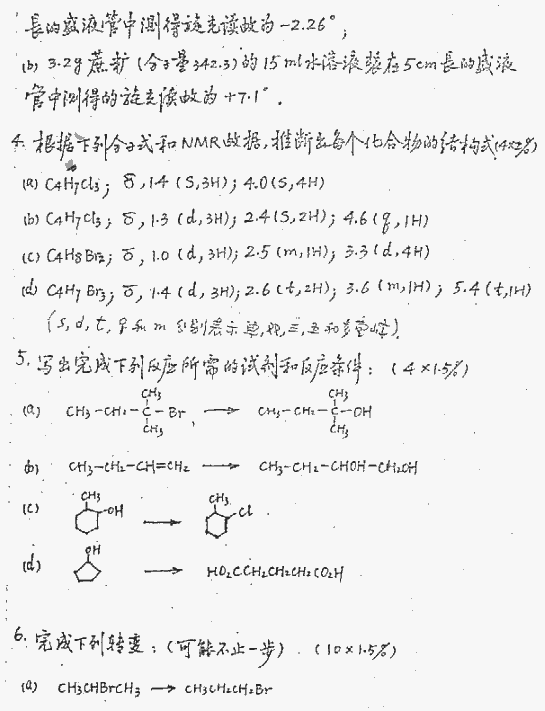 長的盛液管中测得旋光读故为-2.26°;
(b) 3.2g 蔗糖 (分子量342.3)的15ml水溶液装在5cm長的盛液
管中测得的旋光读故为+7.1°.
4. 根据下列分子式和NMR数据,推断出每个化合物的结构式(4×2%)
(a) C4H7Cl3; δ, 1.4 (S,3H); 4.0(S,4H)
(b) C4H7Cl3; δ, 1.3 (d,3H); 2.4(S,2H); 4.6(q,1H)
(c) C4H8Br2; δ, 1.0 (d,3H); 2.5(m,1H); 3.3(d,4H)
(d) C4H7Br3; δ, 1.4 (d,3H); 2.6(t,2H); 3.6(m,1H); 5.4(t,1H)
(s,d,t,q和m分别表示单,双,三,五和多重峰).
5. 写出完成下列反应所需的试剂和反应条件: (4×1.5%)
CH3 CH3
(a) CH3-CH2-C-Br, → CH3-CH2-C-OH
CH3 CH3
(b) CH3-CH2-CH=CH2 → CH3-CH2-CHOH-CH2OH
CH3 CH3
(c) OH → Cl
OH
(d) → HO2CCH2CH2CH2CO2H
6. 完成下列转变: (可能不止一步). (10×1.5%)
(a) CH3CHBrCH3 → CH3CH2CH2Br